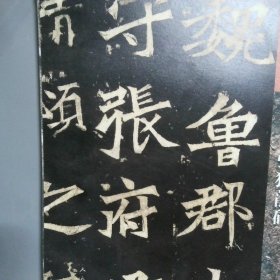 魏魯郡
守張府
清頌之